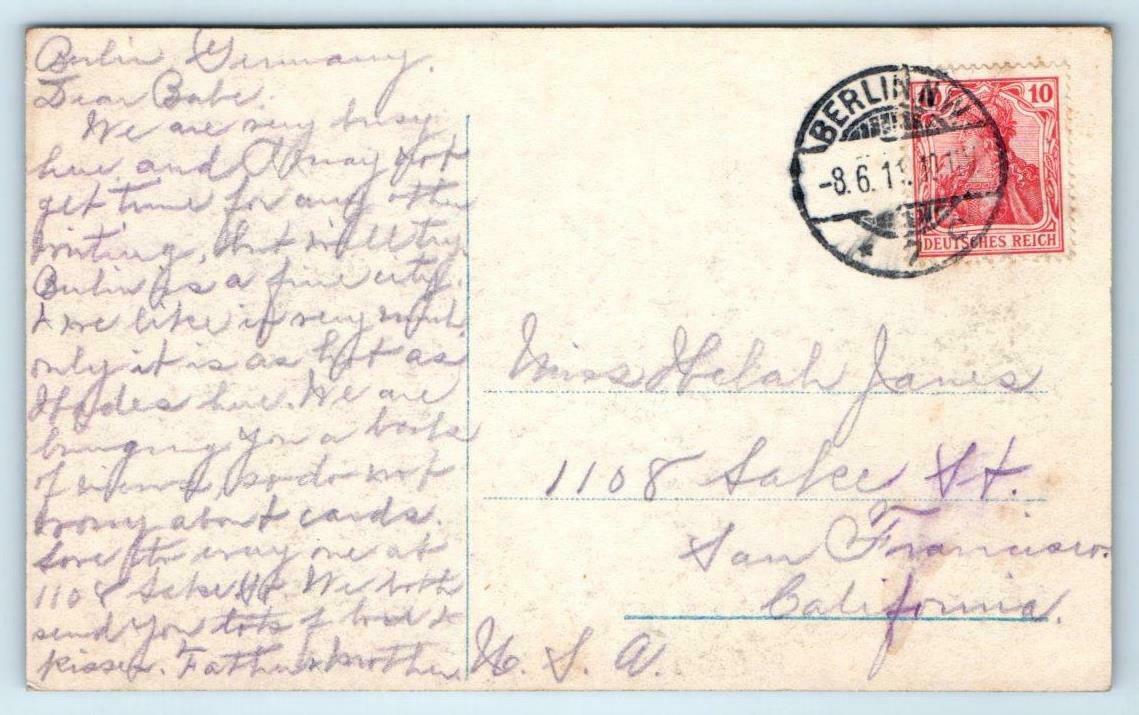 Berlin, Germany.
Dear Babe.
We are very busy
here and I may not
get time for any other
writing, but will try.
Berlin is a fine city
& we like it very much,
only it is as hot as
Hades here. We are
bringing you a book
of views, so do not
worry about cards.
Love to every one at
1108 Lake St. We both
send you lots of love &
kisses. Father & Mother.
BERLIN N.W.
-8.6.11.
10
DEUTSCHES REICH
Miss Helah Janes
1108 Lake St.
San Francisco.
California.
U. S. A.